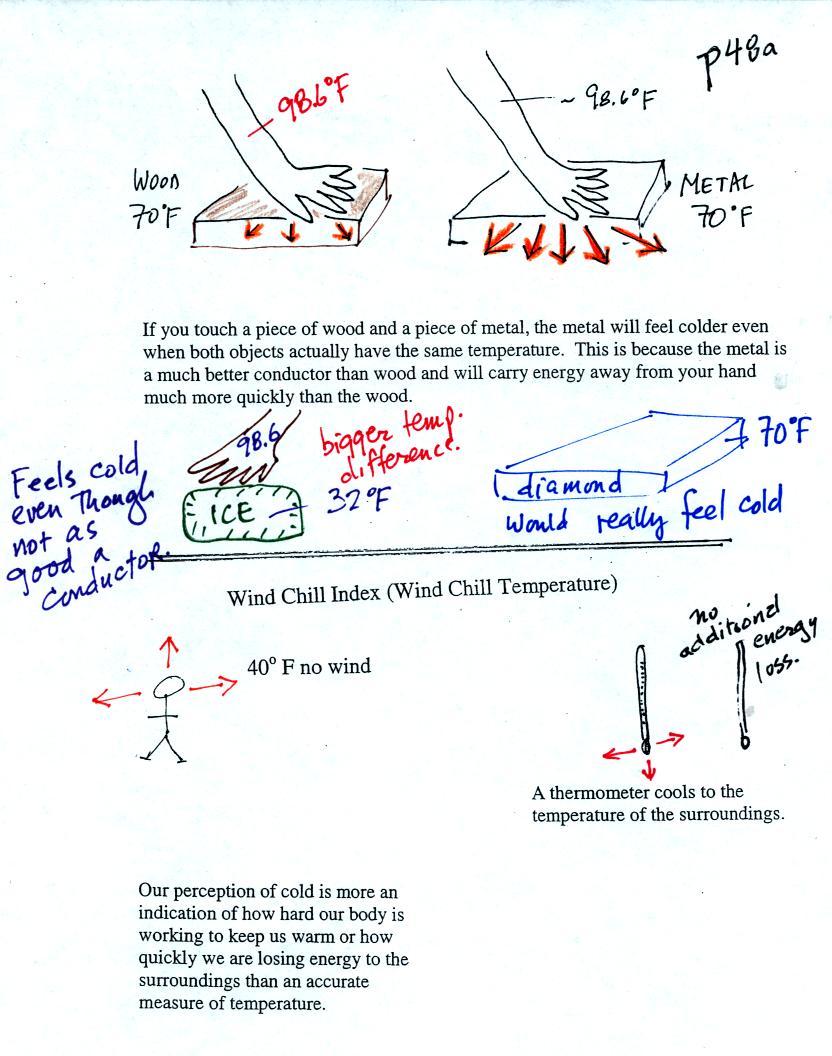 p48a
98.6°F
~ 98.6°F
WOOD
70°F
METAL
70°F
If you touch a piece of wood and a piece of metal, the metal will feel colder even
when both objects actually have the same temperature.  This is because the metal is
a much better conductor than wood and will carry energy away from your hand
much more quickly than the wood.
Feels cold,
even though
not as
good a
conductor.
98.6
ICE
32°F
bigger temp.
difference.
diamond
70°F
would really feel cold
Wind Chill Index (Wind Chill Temperature)
40° F no wind
no
additional
energy
loss.
A thermometer cools to the
temperature of the surroundings.
Our perception of cold is more an
indication of how hard our body is
working to keep us warm or how
quickly we are losing energy to the
surroundings than an accurate
measure of temperature.